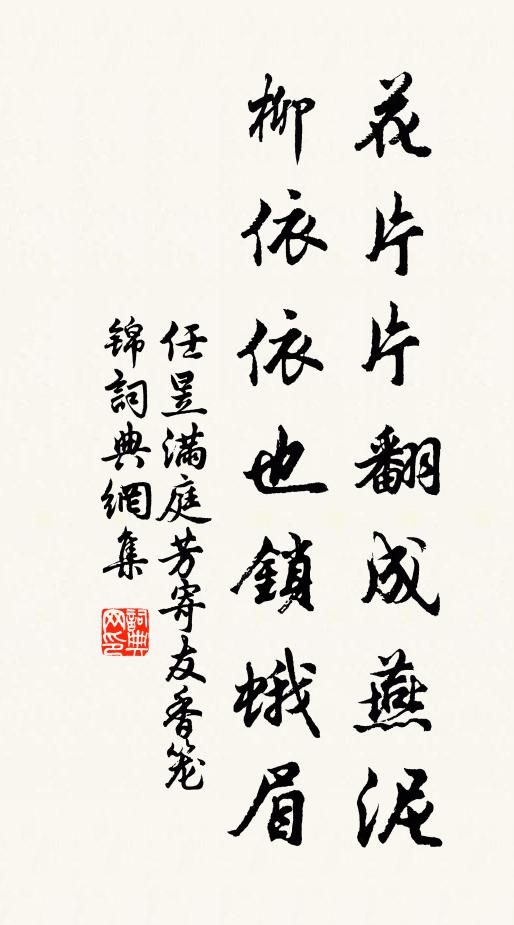 花片片翻成燕泥
柳依依也鎖蛾眉
任昱滿庭芳寄友香笼
錦詞典網集
詞典網印